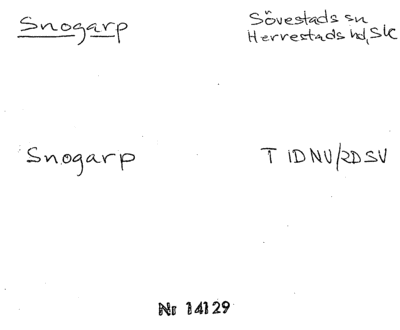 Snogarp
Sövestads sn
Herrestads hd, Sk
Snogarp
T 1D NV/2D SV
Nr 14129